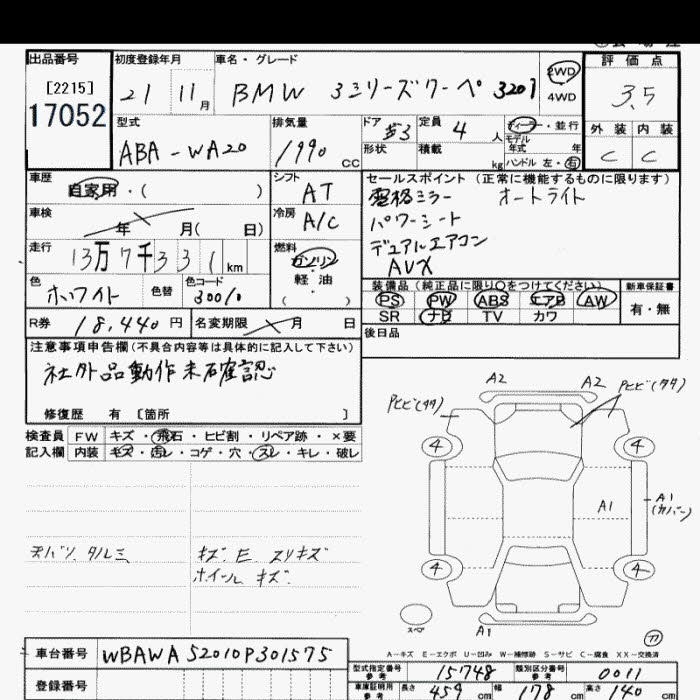 出品番号 初度登録年月 車名・グレード 評価点
[2215] 21 11月 BMW 3シリーズクーペ 320i 2WD 4WD 3.5
17052
型式 排気量 ドア 定員 ディーラー・並行 外装 内装
ABA-WA20 1990 cc 3 4人 モデル年式 年 C C
形状 積載 kg ハンドル 左・右
車歴 自家用・( ) シフト AT セールスポイント (正常に機能するものに限ります)
電格ミラー オートライト
車検 年 月( 日) 冷房 A/C パワーシート
走行 13万7千331km 燃料 ガソリン・軽油 ( ) デュアルエアコン
AUX
色 ホワイト 色替 色コード 300/0 装備品 (純正品に限り〇をつけてください) 新車保証書
PS PW ABS エアB AW 有・無
R券 18,440円 名変期限 月 日 SR ナビ TV カワ
注意事項申告欄(不具合内容等は具体的に記入して下さい) 後日品
社外品動作未確認
修復歴 有 〔箇所 〕
検査員 FW キズ・飛石・ヒビ割・リペア跡・×要
記入欄 内装 キズ・汚レ・コゲ・穴・スレ・キレ・破レ
A2 A2 Pヒビ(タタ)
Pヒビ(タタ)
4 4
A1 A1(カバー)
天バリ タルミ キズ E スリキズ
ホイール キズ
4 4
スペア A1
A-キズ E-エクボ U-凹み W-補修跡 S-サビ C-腐食 XX-交換済
車台番号 WBAWA52010P301575
型式指定番号 参考 15748 類別区分番号 参考 0011
登録番号 車庫証明用 参考 長さ 459 cm 幅 178 cm 高さ 140 cm